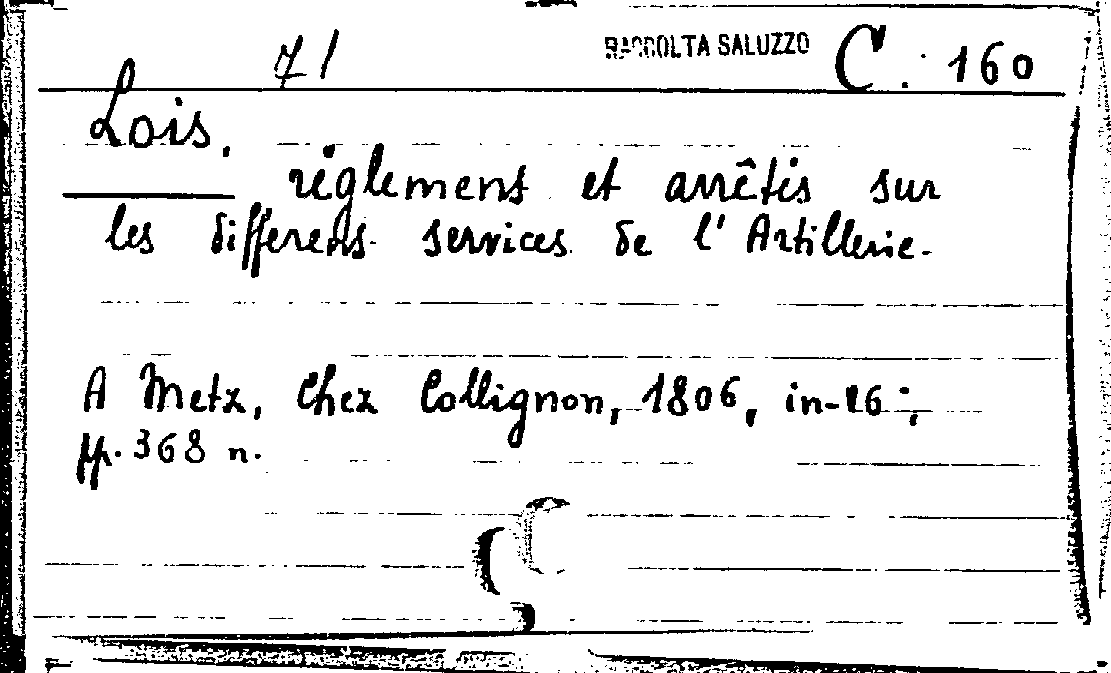 71 RACCOLTA SALUZZO C. 160
Lois,
règlement et arrêtés sur
les differens services de l'Artillerie.
A Metz, Chez Collignon, 1806, in-16°,
pp. 368 n.